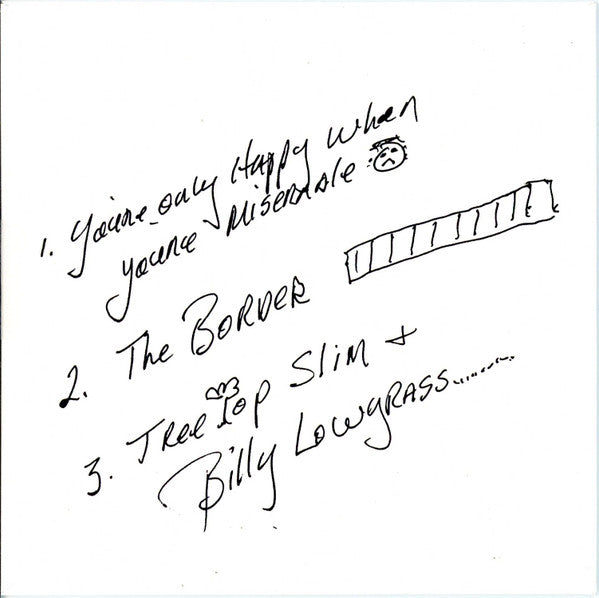 1. You're only Happy when
you're miserable
2. The BORDER
3. Tree Top Slim +
Billy Lowgrass........